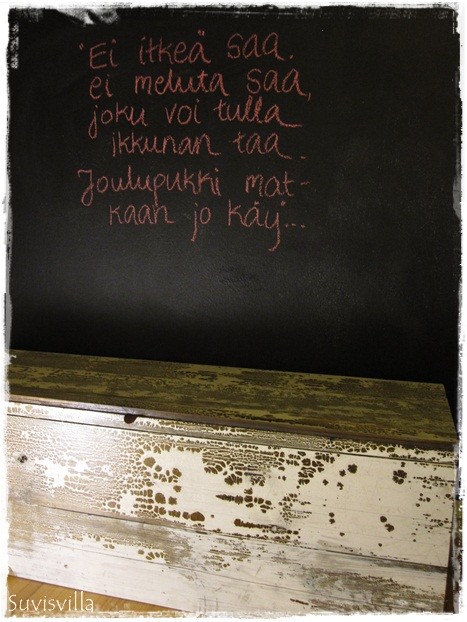 "Ei itkeä saa.
ei meluta saa,
joku voi tulla
ikkunan taa.
Joulupukki mat-
kaan jo käy"...
Suvisvilla